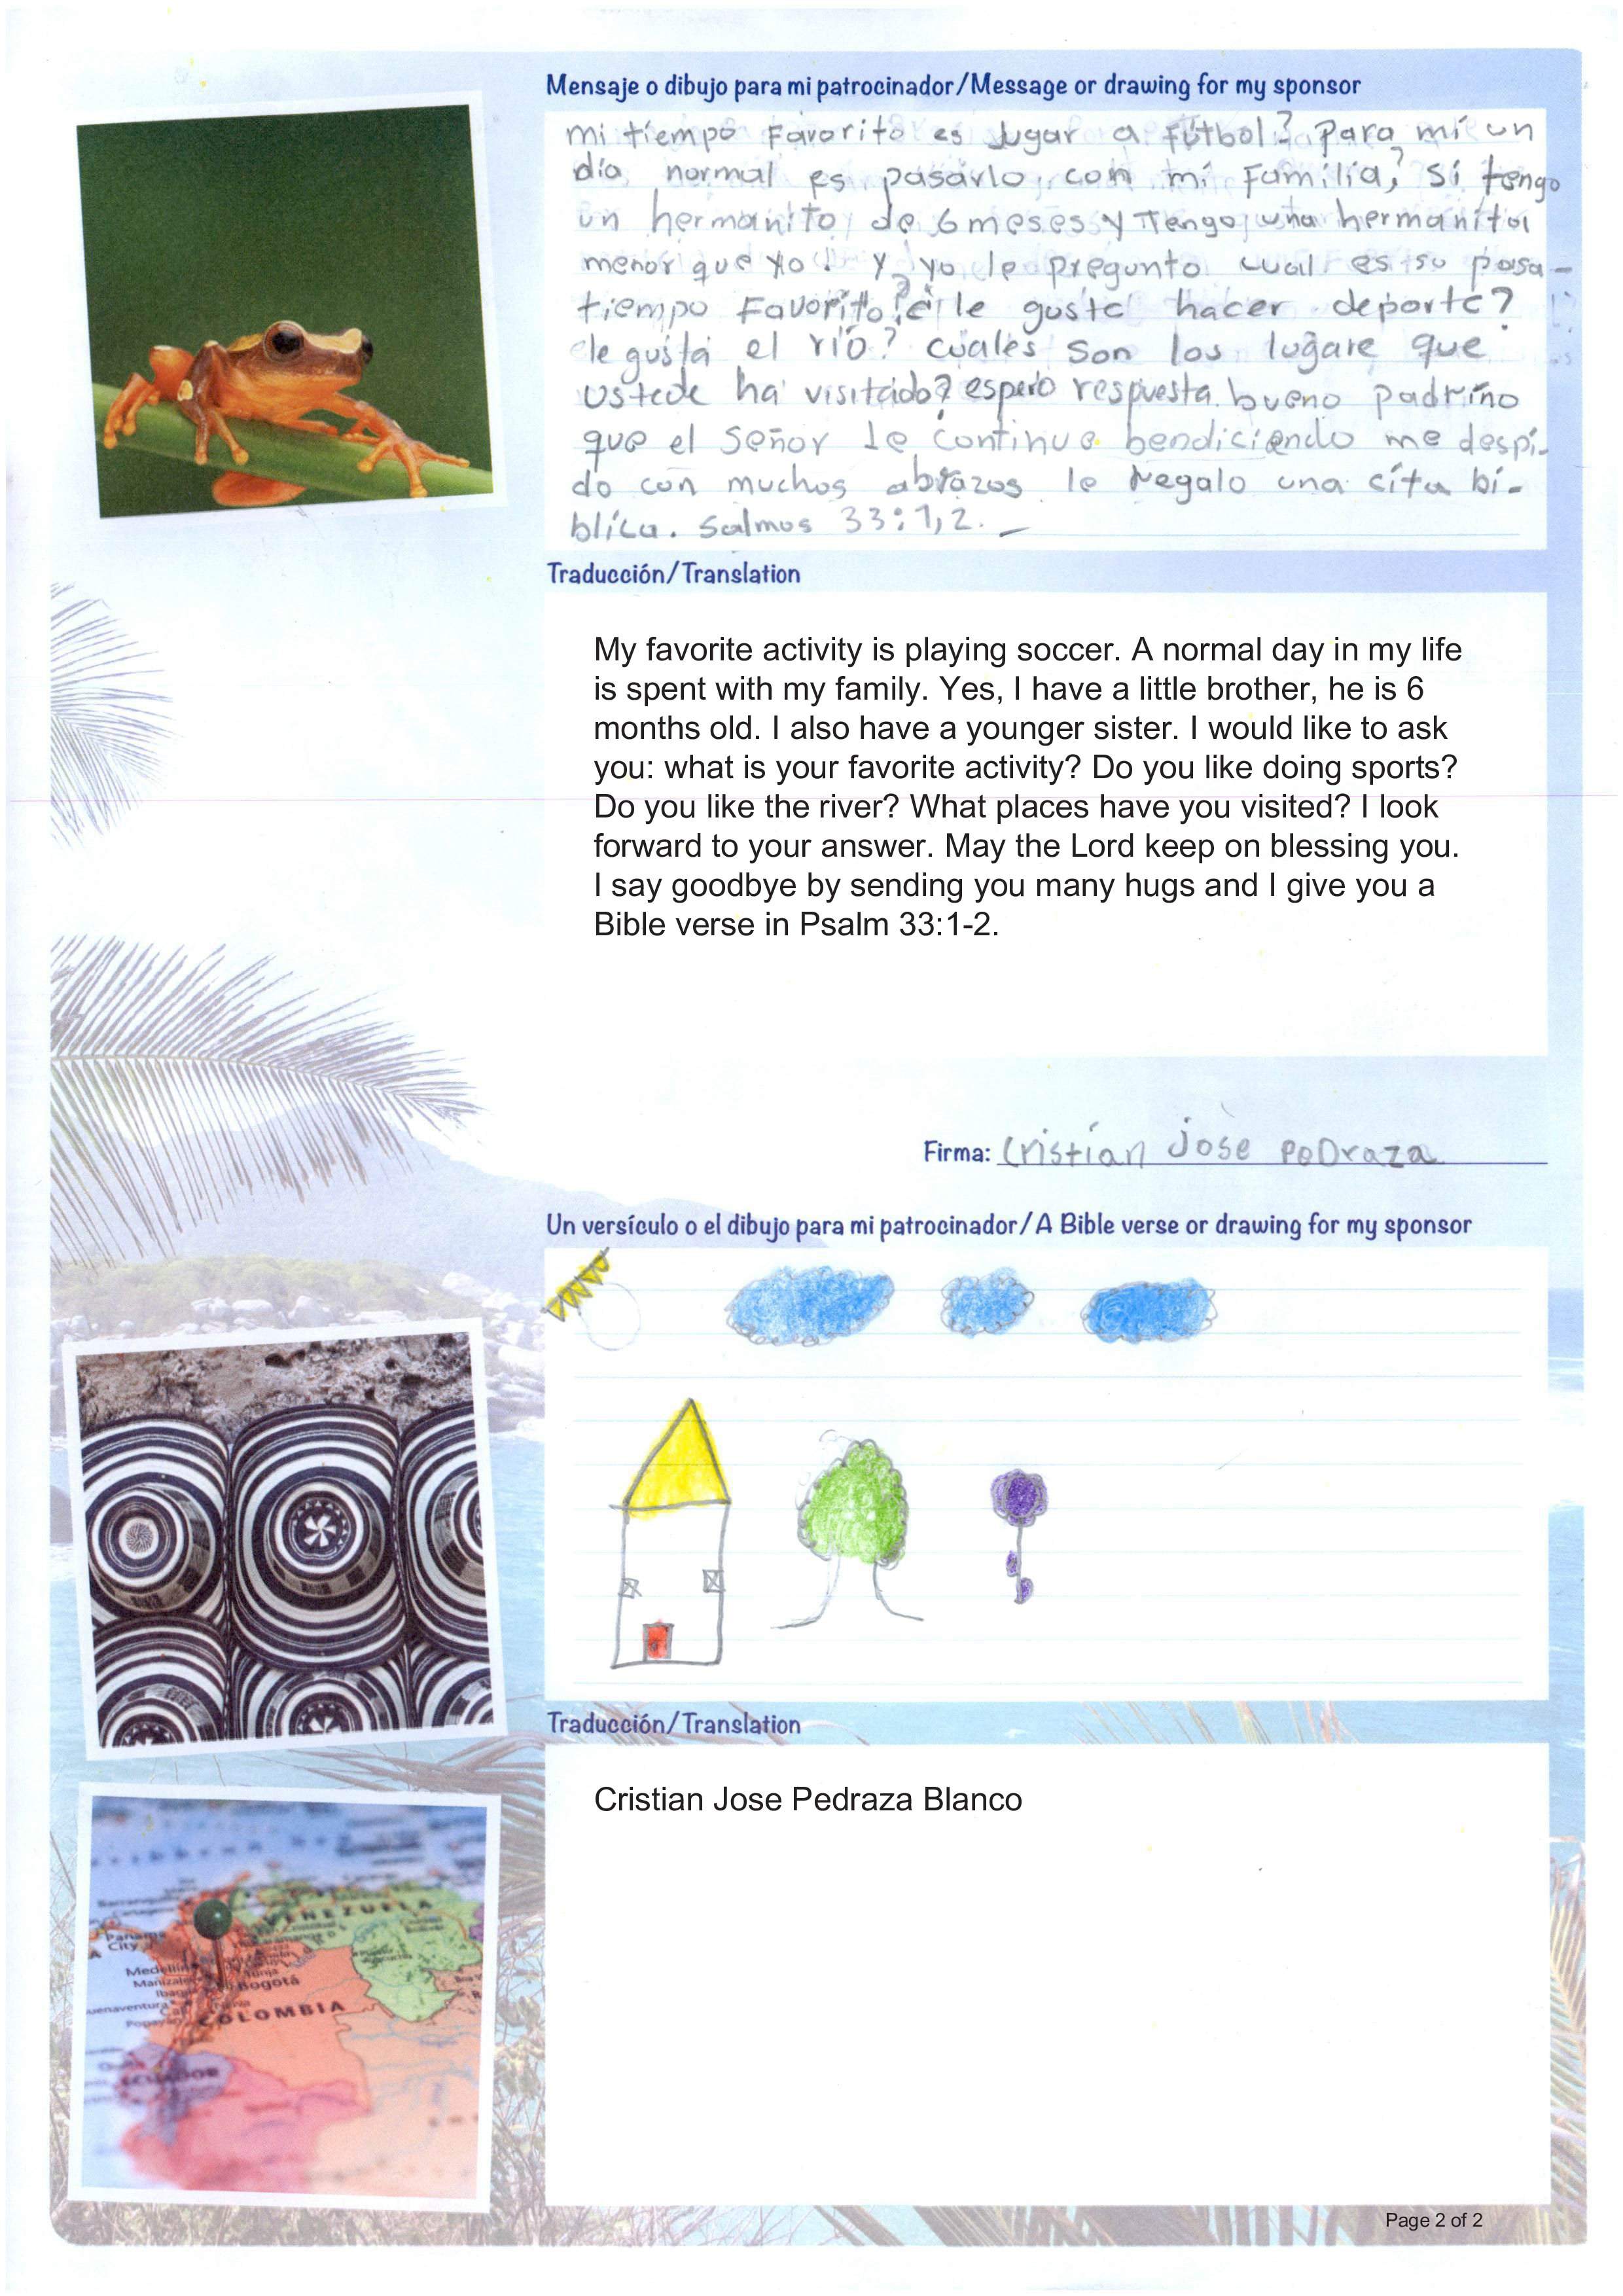 Mensaje o dibujo para mi patrocinador/Message or drawing for my sponsor
mi tiempo Favorito es Jugar a Fútbol? Para mí un
día normal es pasarlo con mi Familia? Sí tengo
un hermanito de 6 meses y Tengo una hermanita
menor que yo! Y yo le pregunto cual es su pasa-
tiempo Favorito? le gusta hacer deporte?
le gusta el río? cuales son los lugare que
ustede ha visitado? espero respuesta. bueno padrino
que el Señor le continue bendiciendo me despi-
do con muchos abrazos le Regalo una cita bí-
blica. Salmos 33:1,2.
Traducción/Translation
My favorite activity is playing soccer. A normal day in my life
is spent with my family. Yes, I have a little brother, he is 6
months old. I also have a younger sister. I would like to ask
you: what is your favorite activity? Do you like doing sports?
Do you like the river? What places have you visited? I look
forward to your answer. May the Lord keep on blessing you.
I say goodbye by sending you many hugs and I give you a
Bible verse in Psalm 33:1-2.
Firma: Cristian Jose PeDraza
Un versículo o el dibujo para mi patrocinador/A Bible verse or drawing for my sponsor
Traducción/Translation
Cristian Jose Pedraza Blanco
VENEZUELA
Panama
City
Medellin
Manizales
Tunja
Ibague
Bogotá
Buenaventura
Cali
Popayan
COLOMBIA
ECUADOR
Page 2 of 2